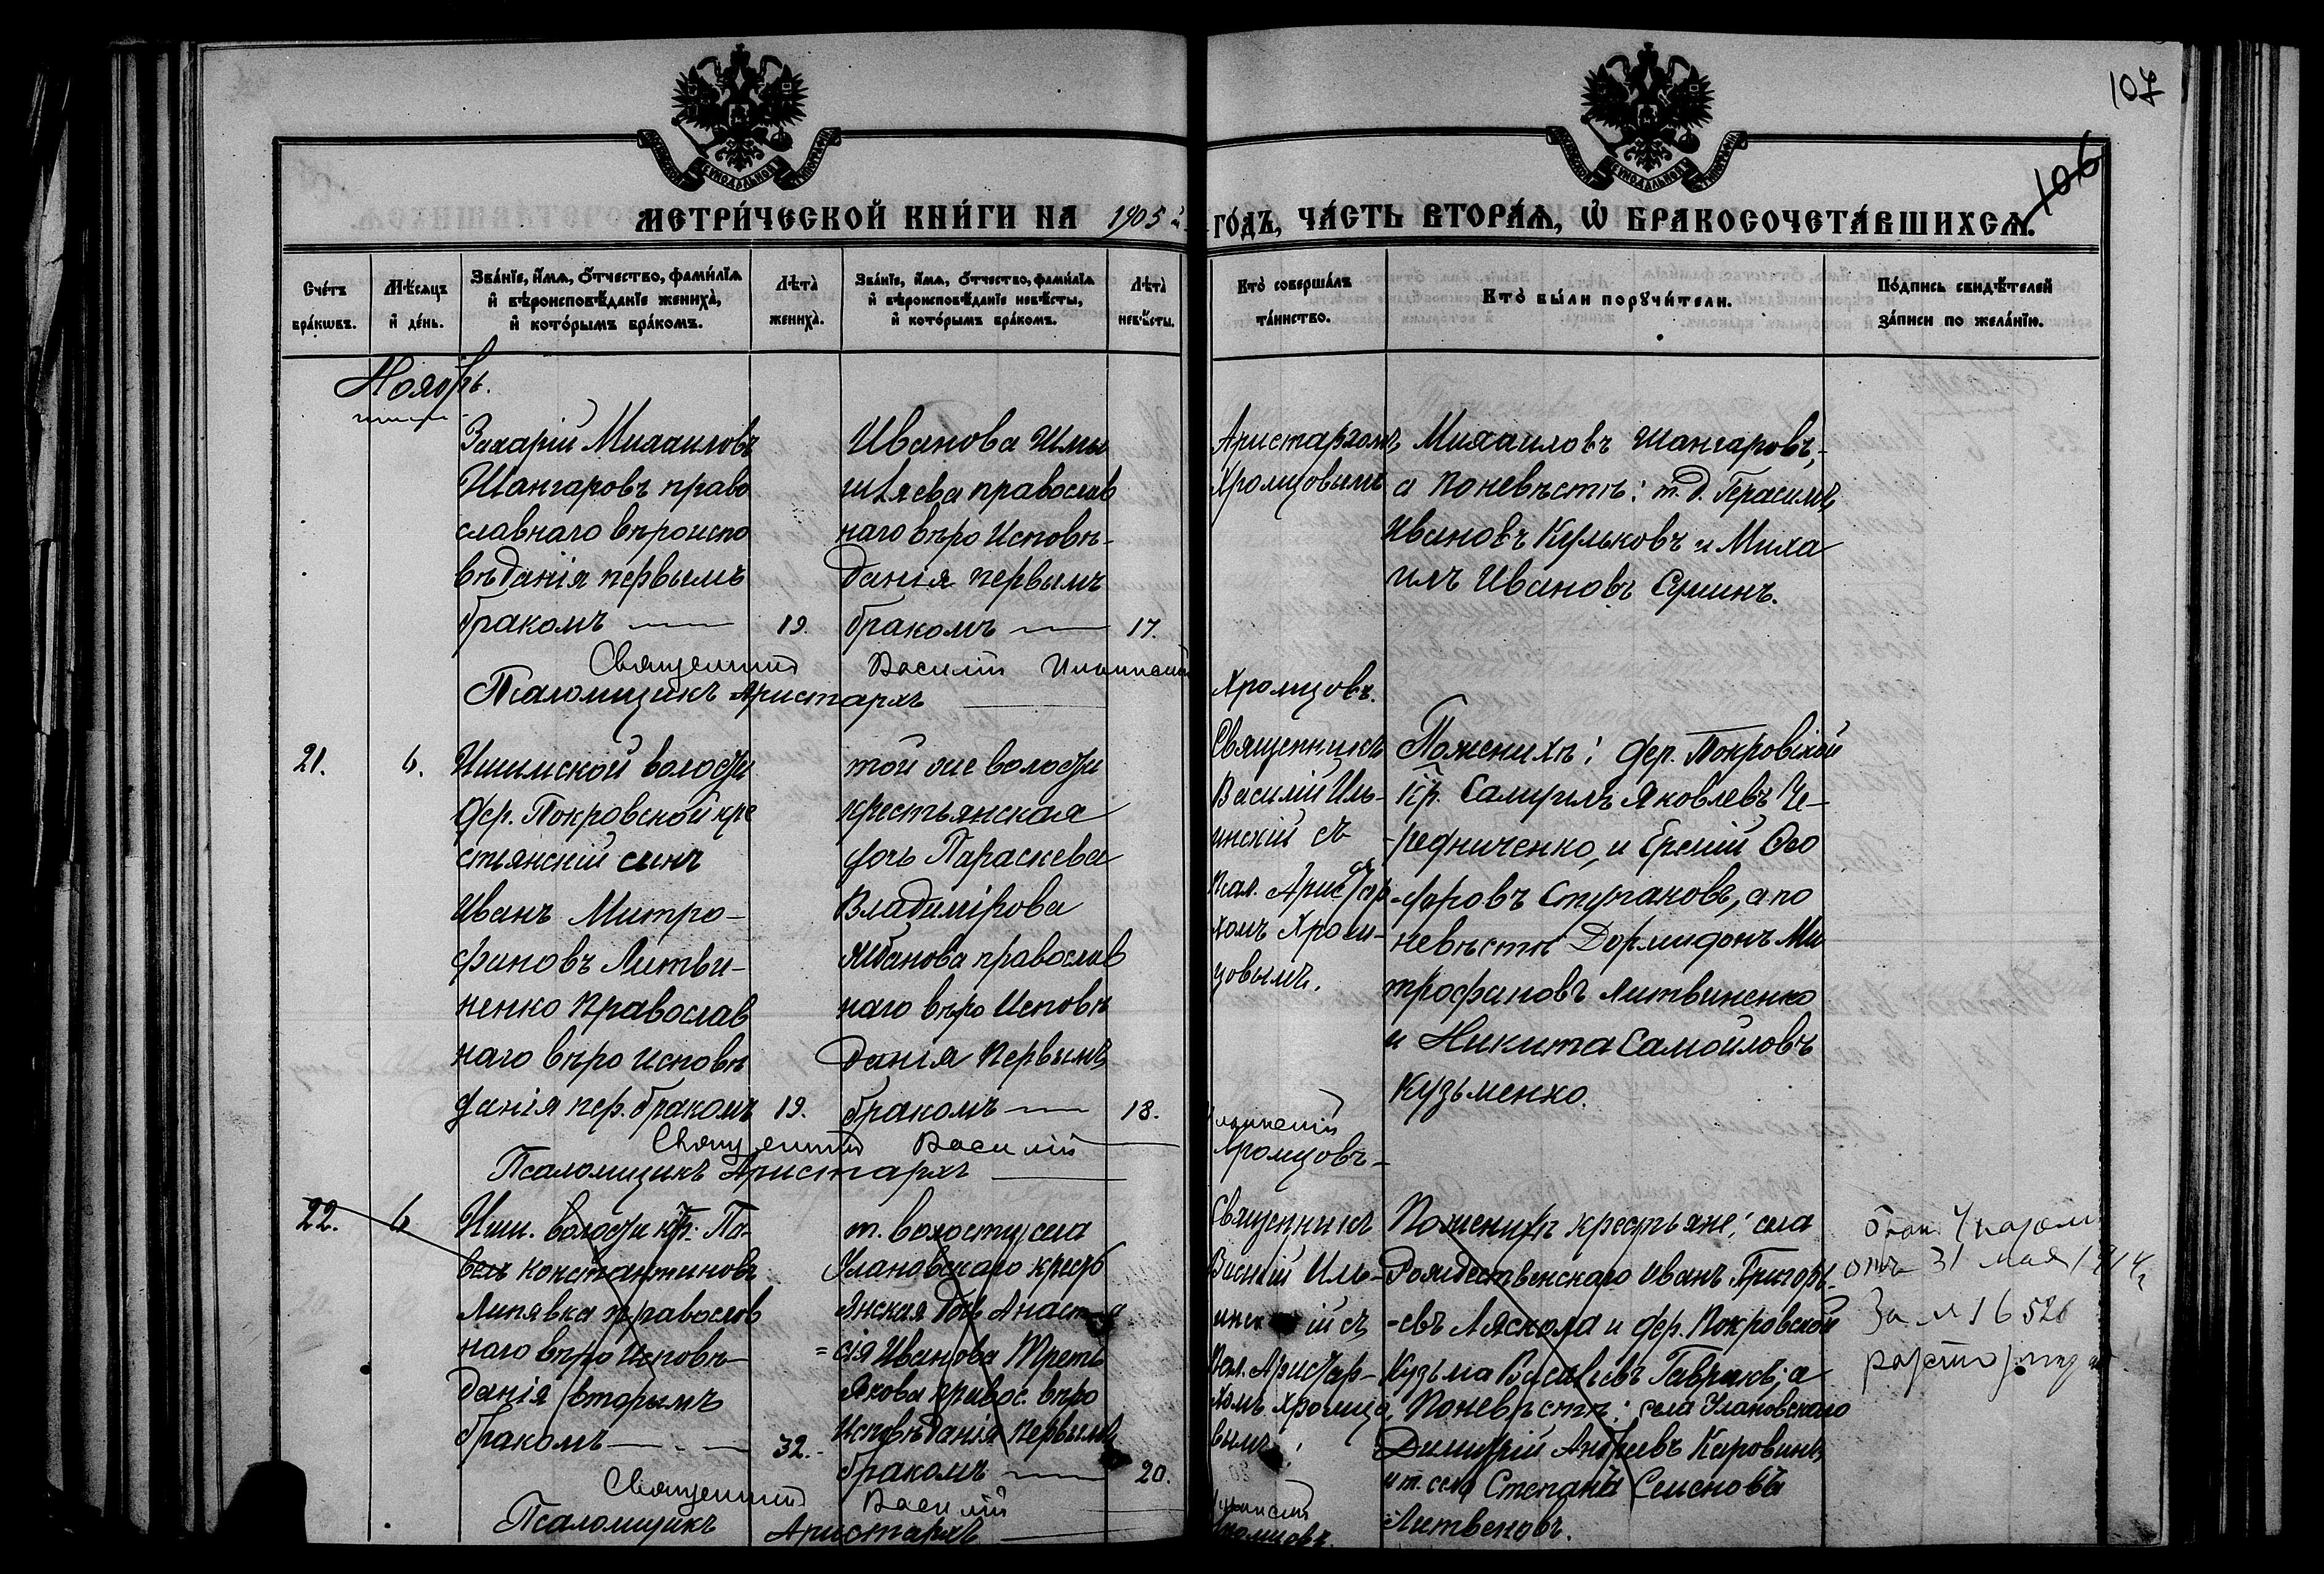 107
106
МЕТРИ́ЧЕСКОЙ КНИ́ГИ НА 1905 й ГО́ДЪ, ЧА́СТЬ ВТОРА́Ѧ, Ѡ҆ БРАКОСОЧЕТА́ВШИХСѦ.
Сче́тъ бра́кѡвъ.
Мѣ́сѧцъ и҆ де́нь.
Зва́нїе, и҆́мѧ, ѻ҆́тчество, фами́лїѧ и҆ вѣроисповѣ́данїе жениха̀, и҆ кото́рымъ бра́комъ.
Лѣ́та жениха̀.
Зва́нїе, и҆́мѧ, ѻ҆́тчество, фами́лїѧ и҆ вѣроисповѣ́данїе невѣ́сты, и҆ кото́рымъ бра́комъ.
Лѣ́та невѣ́сты.
Кто̀ соверша́лъ та́инство.
Кто̀ бы́ли порꙋчи́тели.
По́дпись свидѣ́телей за́писи по жела́нїю.
Ноябрь.
Захарій Михаиловъ
Шангаровъ право
славнаго вѣроиспо
вѣданія первымъ
бракомъ 19.
Иванова
православ
наго вѣро Исповѣ-
данія первымъ
бракомъ 17.
Аристархомъ
Хромцовымъ
Михаиловъ Шангаровъ,
а поневѣстѣ: т. д. Герасимъ
Ивановъ Кульковъ и Миха
илъ Ивановъ Суминъ.
Священникъ Василій Ильинскій
Псаломщикъ Аристархъ Хромцовъ.
21. 6.
Ишимской волости
дер. Покровской кре
стьянскій сынъ
Иванъ Митро-
фановъ Литви-
ненко православ
наго вѣро исповѣ
данія пер. бракомъ 19.
той же волости
крестьянская
дочь Параскева
Владимірова
православ
наго вѣро Исповѣ
данія Первымъ
бракомъ 18.
Священникъ
Василій Иль-
инскій съ
Псал. Аристар
хомъ Хром-
цовымъ.
Поженихѣ: дер. Покровской
кр. Самуилъ Яковлевъ Че-
редниченко, и Ерсній Ѳео
-доровъ Ступаковъ, а по
невѣстѣ Дормидонъ Ми
трофановъ Литвиненко
и Никита Самойловъ
Кузьменко.
Священникъ Василій Ильинскій
Псаломщикъ Аристархъ Хромцовъ
22. 6
Иши. волости кр. Па-
велъ Константиновъ
Липявка православ
наго вѣро Исповѣ-
данія вторымъ
бракомъ 32.
т. волости села
Улановскаго крест
янская дочь Анаста
сія Иванова Треть
якова правос. вѣро
Исповѣданія Первымъ
бракомъ 20.
Священникъ
Василій Иль-
инскій съ
Псал. Аристар-
хомъ Хромцо
вымъ.
Поженихѣ крестьяне: села
Рождественскаго Иванъ Григорь-
-евъ Ляскола и дер. Покровской
Кузьма Гаврикъ; а
Поневѣстѣ: села Улановскаго
Димитрій Андреевъ Каровинъ
и т. села Степанъ Семеновъ
Литвеновъ.
отъ 31 мая 1914 г
за № 16526
Священникъ Василій Ильинскій
Псаломщикъ Аристархъ Хромцовъ.